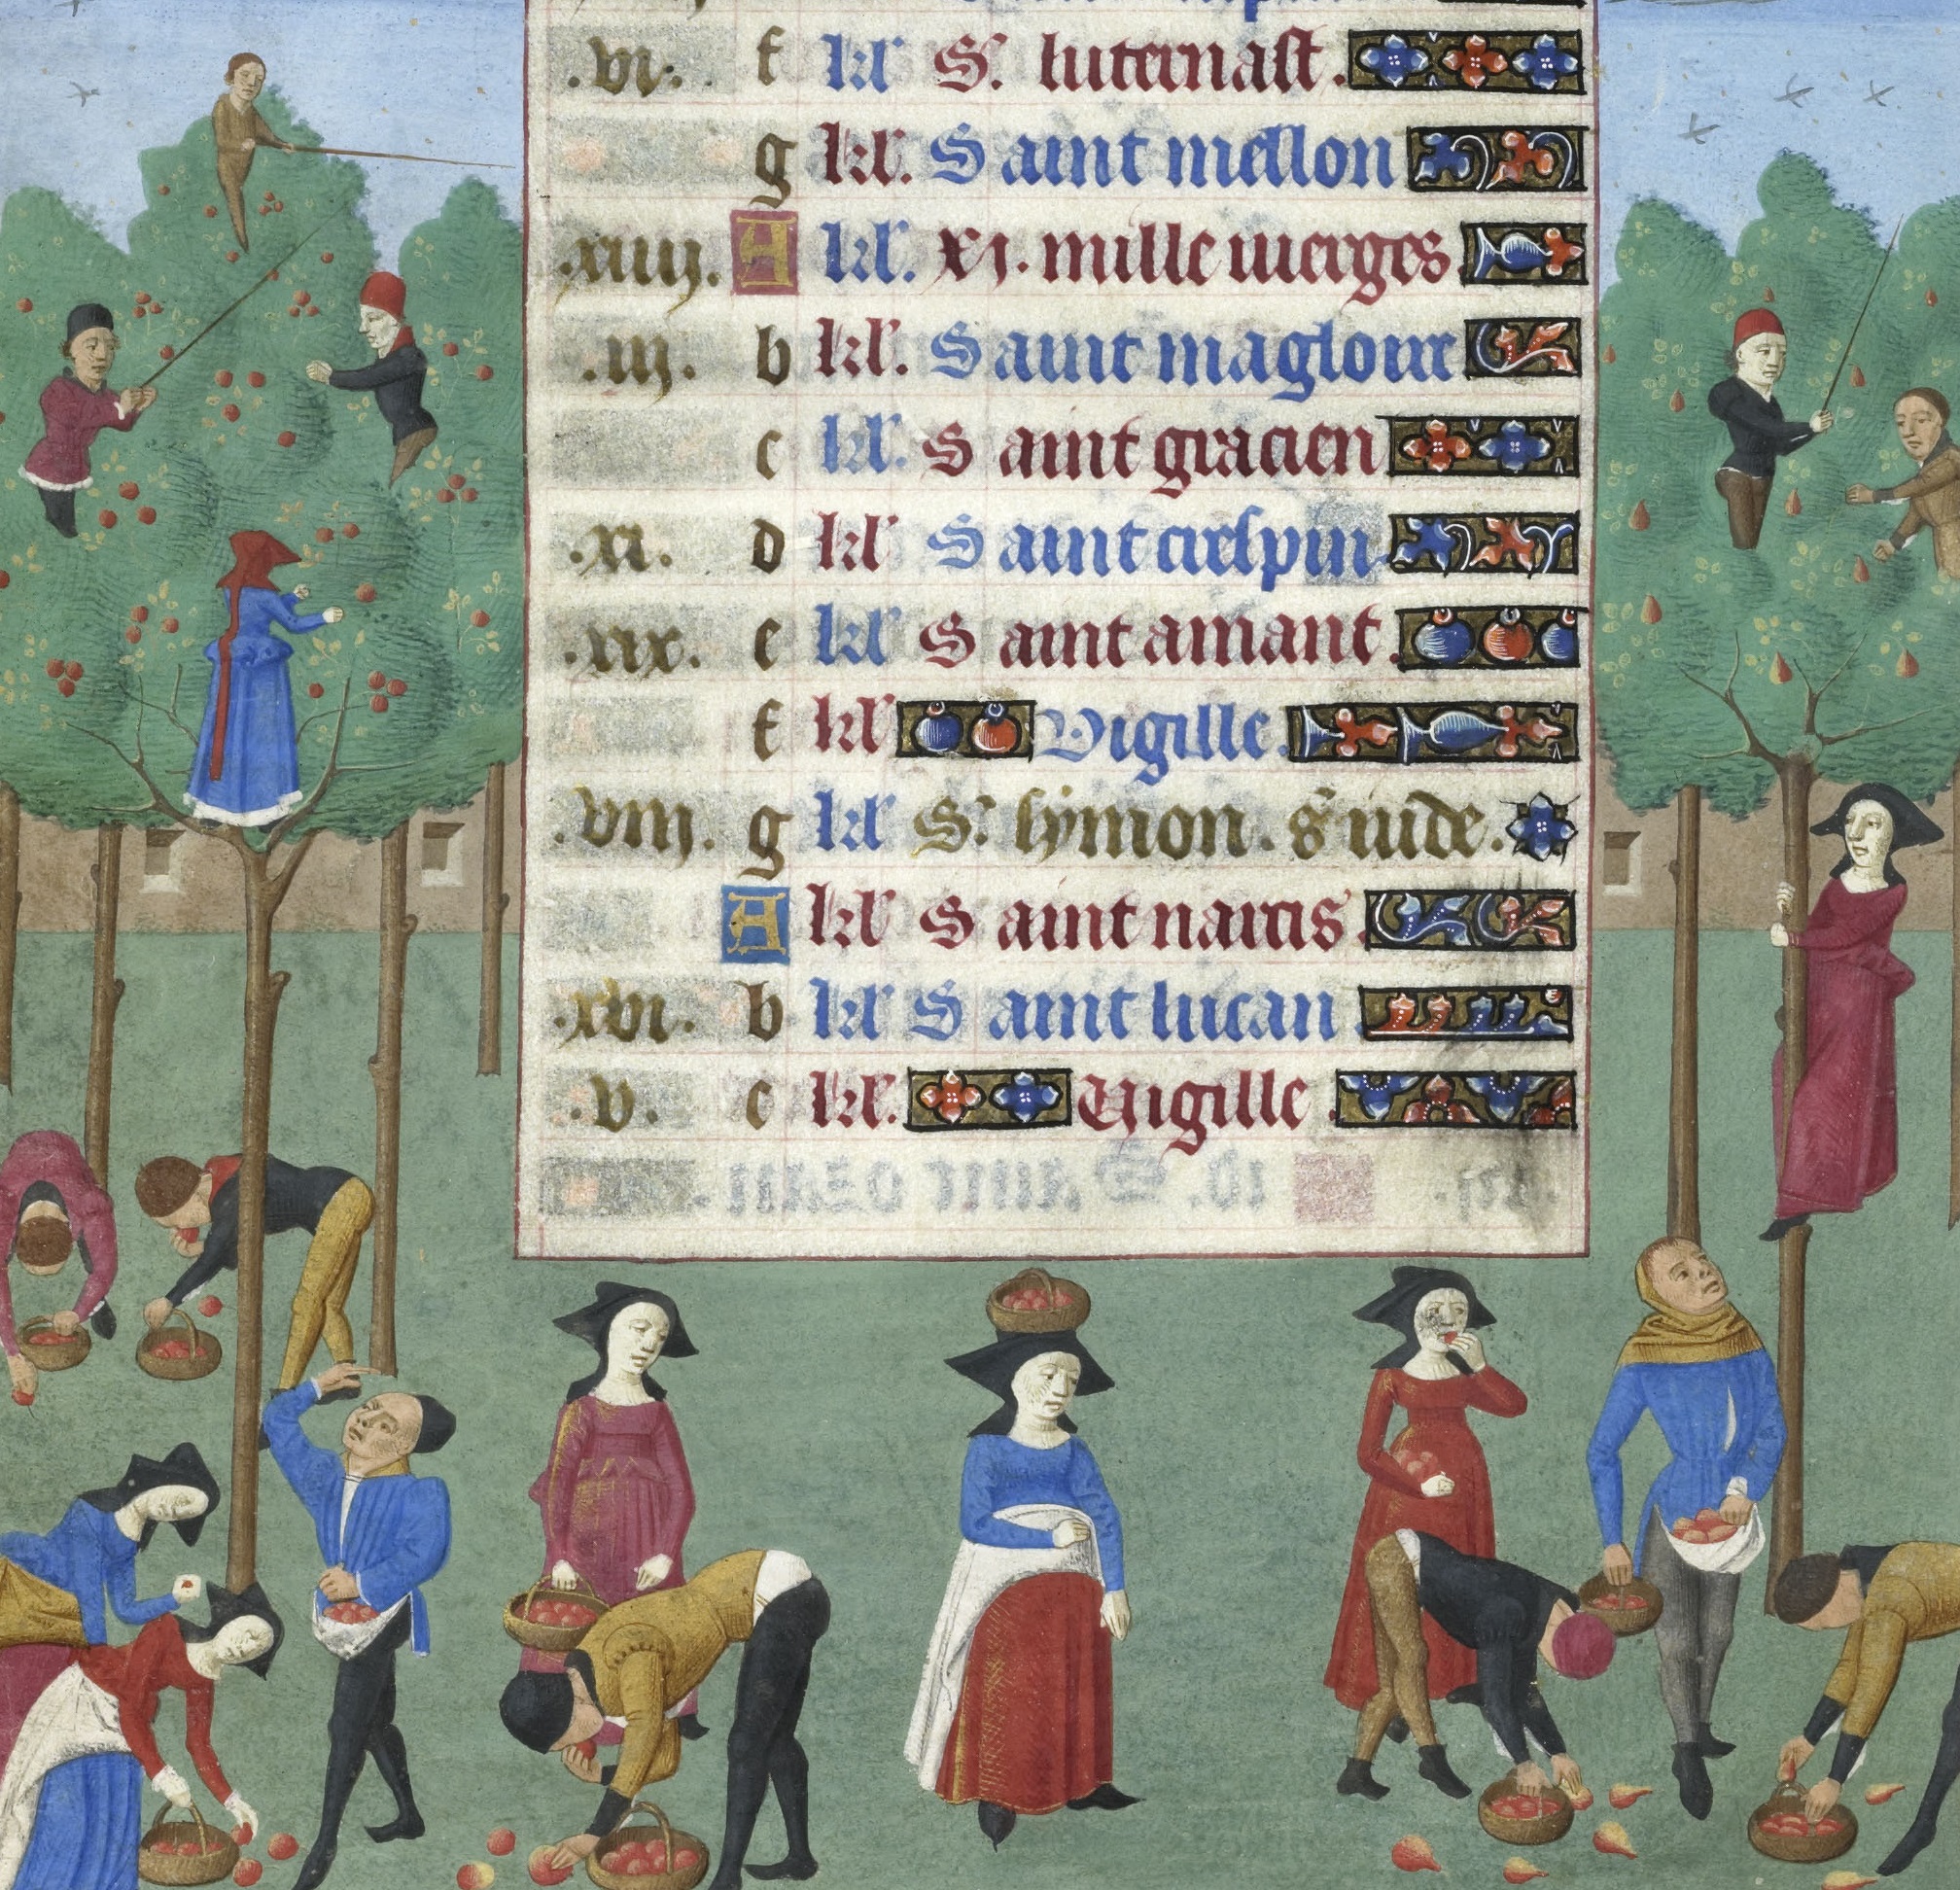 .vi. f kl' S'. luternast.
g kl'. Saint mellon
.xiiij. A kl'. xj. mille uierges
.iij. b kl'. Saint magloire
c kl'. Saint gracien
.xi. d kl' Saint crespin
.xix. e kl' Saint amant.
f kl' Vigille.
.viij. g kl' S'. symon. s' iude.
A kl' Saint narcis.
.xvi. b kl' Saint lucan
.v. c kl'. Vigille.